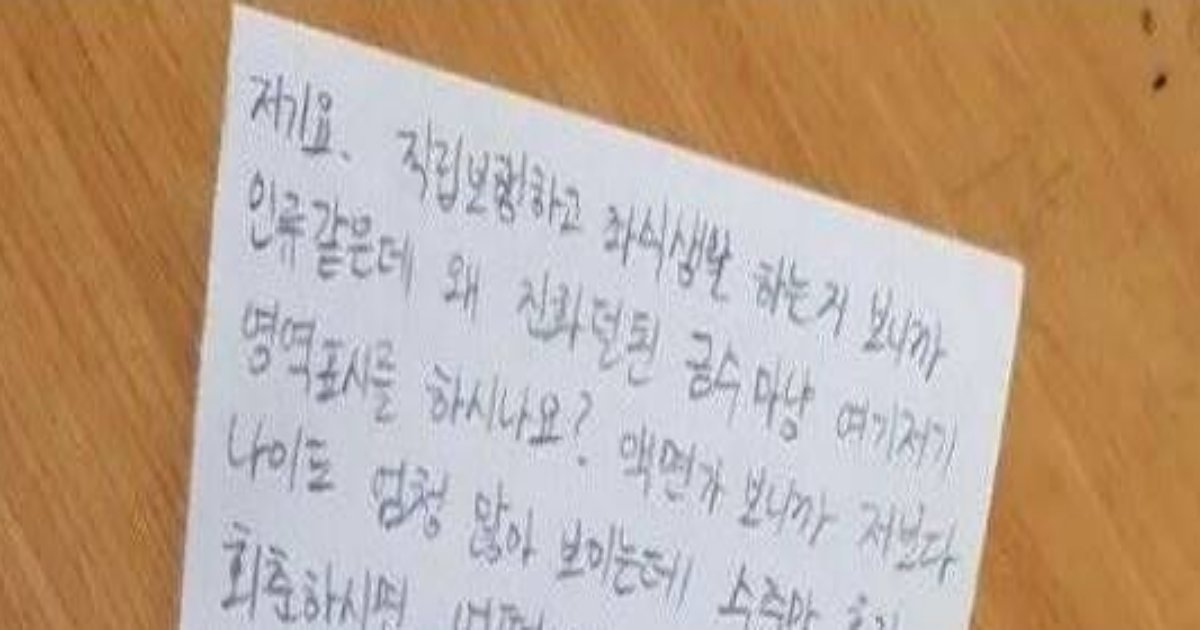 저기요. 직립보행하고 좌식생활 하는거 보니까
인류같은데 왜 진화덜된 금수마냥 여기저기
영역표시를 하시나요? 액면가 보니까 저보다
나이도 엄청 많아 보이는데
회춘하시면